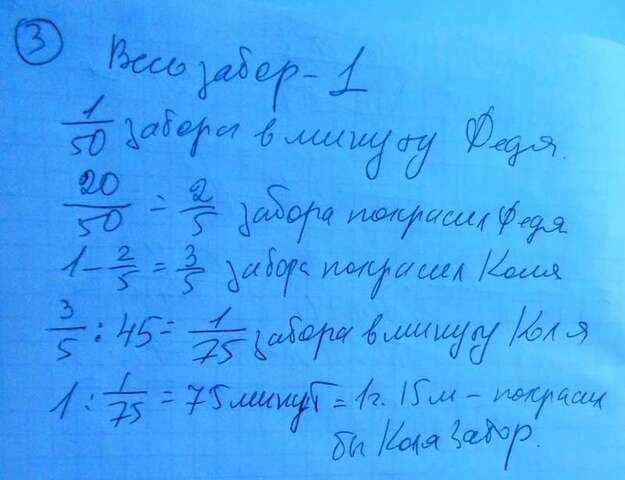 3
Весь забор - 1
1/50 забора в минуту Федя.
20/50 = 2/5 забора покрасил Федя
1 - 2/5 = 3/5 забора покрасил Коля
3/5 : 45 = 1/75 забора в минуту Коля
1 : 1/75 = 75 минут = 1г. 15м - покрасил
бы Коля забор.